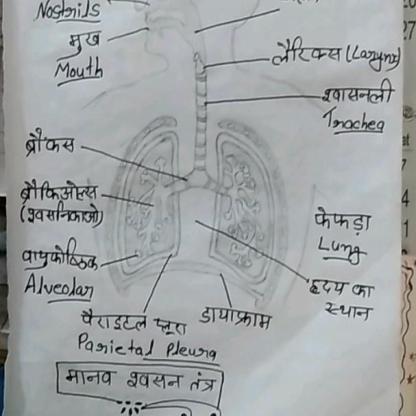 Nostrils
मुख
Mouth
लैरिंक्स (Larynx)
श्वासनली
Trachea
ब्रौंकस
ब्रौंकिओल्स
(श्वसनिकाओ)
फेफड़ा
Lung
वायुकोष्ठिक
Alveolar
हृदय का
स्थान
पैराइटल प्लूरा
Parietal Pleura
डायाफ्राम
मानव श्वसन तंत्र